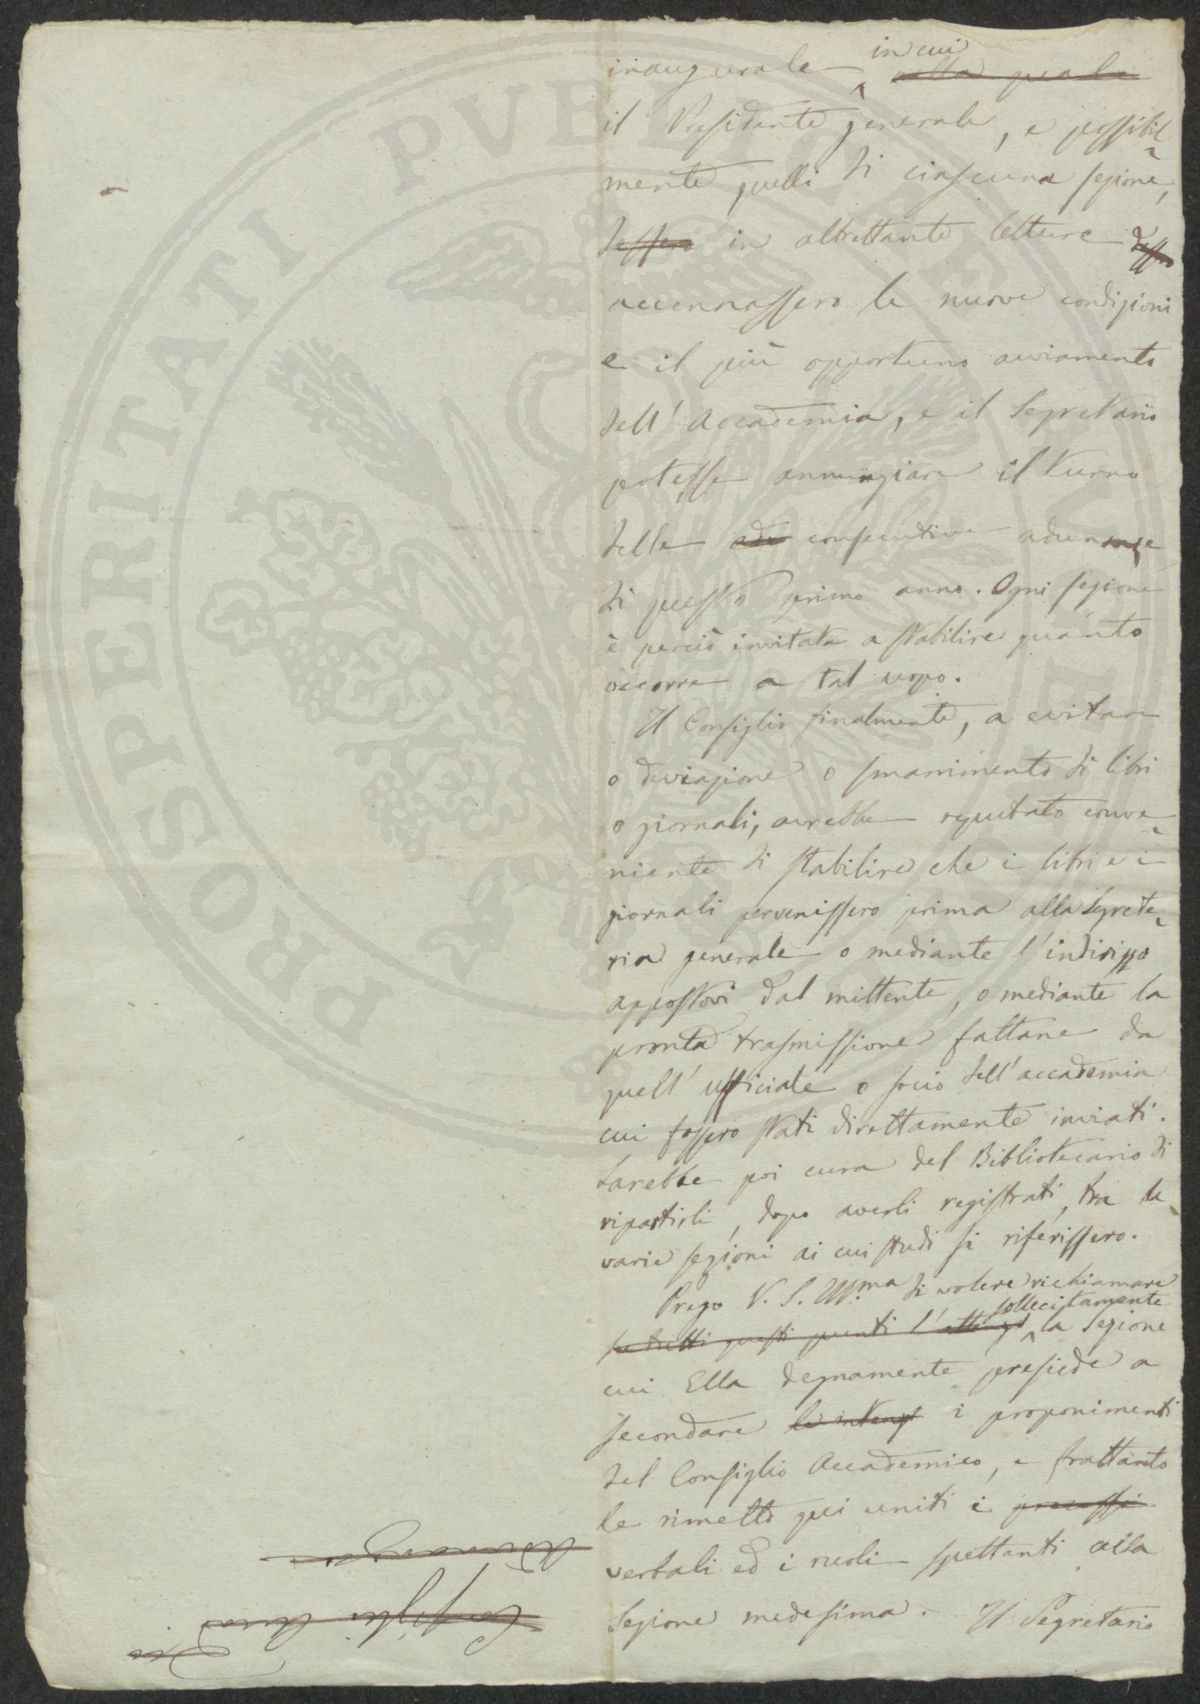 inaugurale in cui nella quale
il Presidente generale, e possibil
mente quelli di ciascuna sezione,
dessero in altrettante letture
accennassero le nuove condizioni
e il più opportuno avviamento
dell'Accademia, e il Segretario
potesse annunziare il turno
delle adu consecutive adunanze
di questo primo anno. Ogni sezione
è perciò invitata a stabilire quanto
occorre a tal uopo.
Il Consiglio finalmente, a evitare
o deviazione o smarrimento di libri
o giornali, avrebbe reputato conve
niente di stabilire che i libri e i
giornali pervenissero prima alla Segrete
ria generale o mediante l'indirizzo
appostovi dal mittente, o mediante la
pronta trasmissione fattane da
quell'ufficiale o socio dell'accademia
cui fossero stati direttamente inviati.
Sarebbe poi cura del Bibliotecario di
ripartirli, dopo averli registrati, tra le
varie sezioni ai cui studi si riferissero.
Prego V. S. Illma di volere richiamare
su tutti questi punti l'attenz sollecitamente la Sezione
cui Ella degnamente presiede a
secondare le intenz i proponimenti
del Consiglio Accademico, e frattanto
le rimetto qui uniti i processi
verbali ed i ruoli spettanti alla
Sezione medesima. Il Segretario
PROSPERITATI PUBLICAE